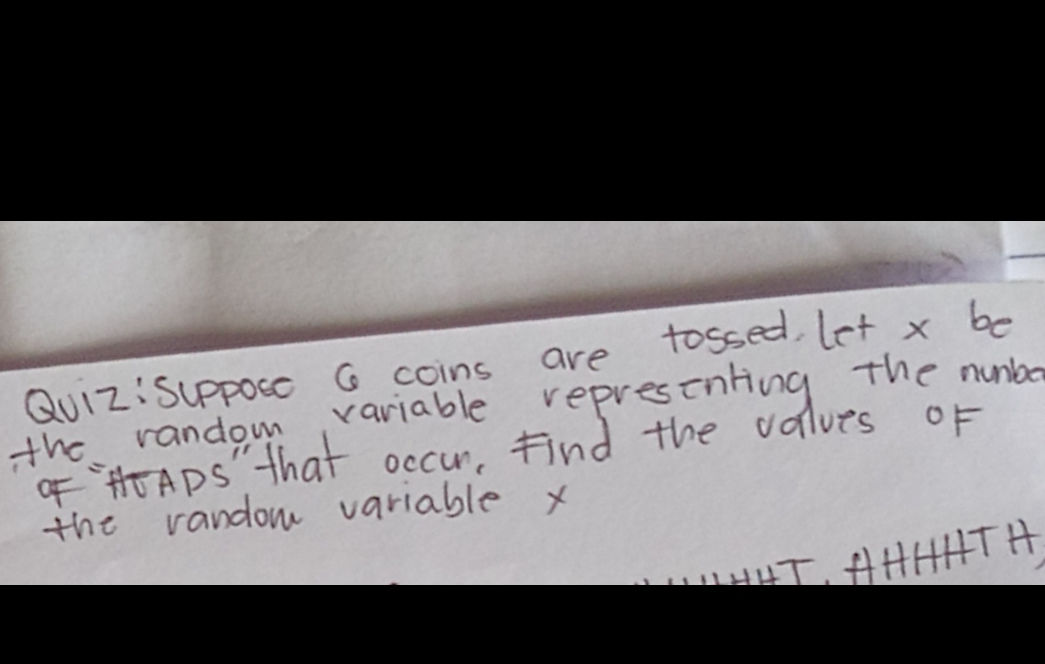 QUIZ: Suppose 6 coins are tossed. let x be
the random variable representing the
of "HEADS" that occur. Find the values OF
the random variable x
HHHHTH,